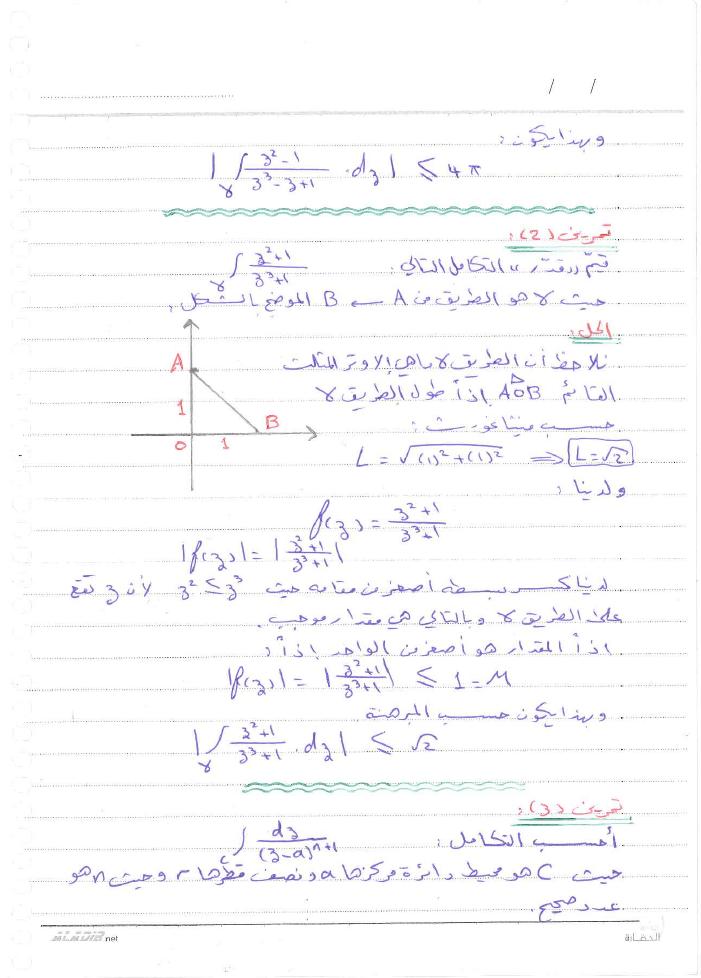 / /
وبهذا يكون :
|∫γ (z²-1)/(z³-z+1) · dz| ≤ 4π
تمرين (2) :
قيّم "قدّر" التكامل التالي : ∫γ (z²+1)/(z³+1)
حيث γ هو الطريق من A ← B الموضح بالشكل .
الحل :
نلاحظ أن الطريق γ ما هي إلا وتر المثلث
القائم AOB إذاً طول الطريق γ
حسب فيثاغورث :
L = √((1)²+(1)²) ⟹ L=√2
ولدينا :
A
1
B
0 1
f(z) = (z²+1)/(z³+1)
|f(z)| = |(z²+1)/(z³+1)|
لدينا كسر بسطه أصغر من مقامه حيث z² ≤ z³ لأن z تقع
على الطريق γ وبالتالي هي مقدار موجب .
إذاً المقدار هو أصغر من الواحد إذاً :
|f(z)| = |(z²+1)/(z³+1)| ≤ 1 = M
وبهذا يكون حسب المبرهنة
|∫γ (z²+1)/(z³+1) · dz| ≤ √2
تمرين (3) :
أحسب التكامل : ∫c dz/(z-a)ⁿ⁺¹
حيث C هو محيط دائرة مركزها a ونصف قطرها r وحيث n هو
عدد صحيح .
ALADIB.net